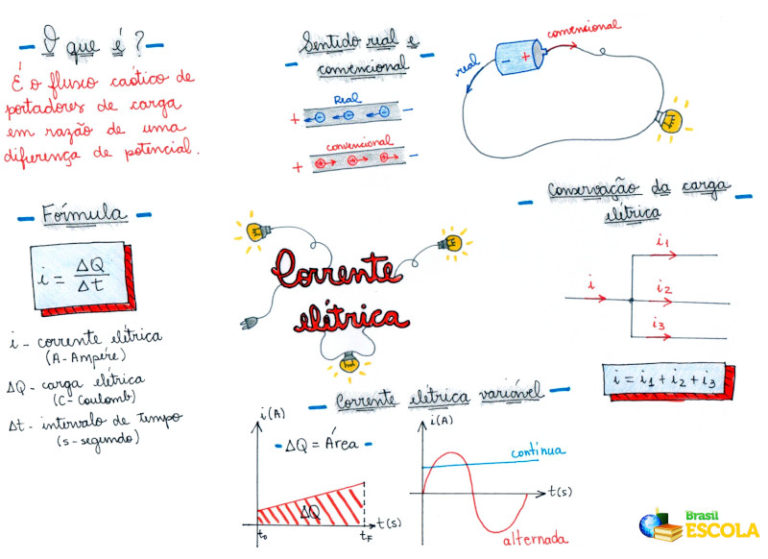 O que é?
É o fluxo caótico de
portadores de carga
em razão de uma
diferença de potencial.
Sentido real e
convencional
Real
+ - - - -
convencional
+ + + + -
real
- +
convencional
Fórmula
i = ΔQ
Δt
i - corrente elétrica
(A - Ampère)
ΔQ - carga elétrica
(C - Coulomb)
Δt - intervalo de tempo
(s - segundo)
Corrente
elétrica
Conservação da carga
elétrica
i
i1
i2
i3
i = i1 + i2 + i3
Corrente elétrica variável
i(A)
ΔQ = Área
ΔQ
t0
tF
t(s)
i(A)
contínua
t(s)
alternada
Brasil
ESCOLA